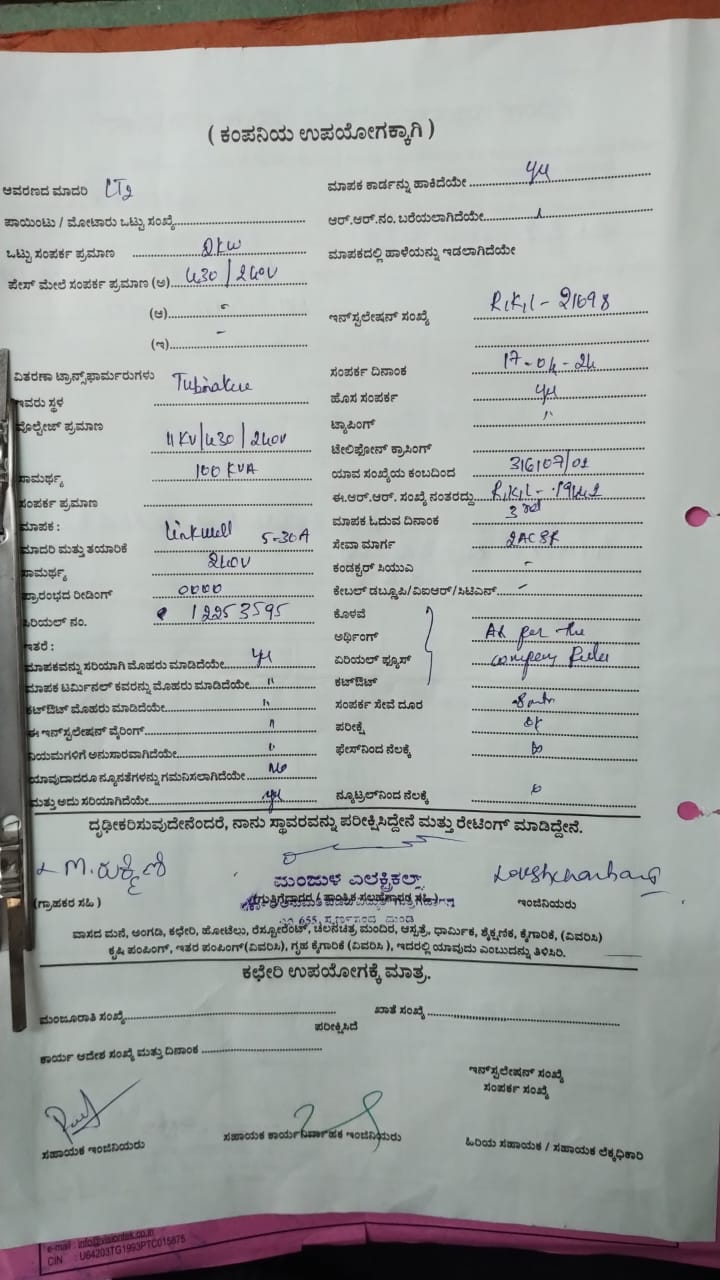 ( ಕಂಪನಿಯ ಉಪಯೋಗಕ್ಕಾಗಿ )
ಆವರಣದ ಮಾದರಿ LT2
ಪಾಯಿಂಟು / ಮೋಟಾರು ಒಟ್ಟು ಸಂಖ್ಯೆ
ಒಟ್ಟು ಸಂಪರ್ಕ ಪ್ರಮಾಣ 2KW
ಫೇಸ್ ಮೇಲೆ ಸಂಪರ್ಕ ಪ್ರಮಾಣ (ಅ) 430/240V
(ಆ) -
(ಇ) -
ವಿತರಣಾ ಟ್ರಾನ್ಸ್‌ಫಾರ್ಮರುಗಳು
ಇವರು ಸ್ಥಳ
ವೊಲ್ಟೇಜ್ ಪ್ರಮಾಣ 11KV/430/240V
ಸಾಮರ್ಥ್ಯ 100 KVA
ಸಂಪರ್ಕ ಪ್ರಮಾಣ
ಮಾಪಕ :
ಮಾದರಿ ಮತ್ತು ತಯಾರಿಕೆ Linkwell 5-30A
ಸಾಮರ್ಥ್ಯ 240V
ಪ್ರಾರಂಭದ ರೀಡಿಂಗ್ 0000
ಸಿರಿಯಲ್ ನಂ. 12253595
ಇತರೆ :
ಮಾಪಕವನ್ನು ಸರಿಯಾಗಿ ಮೊಹರು ಮಾಡಿದೆಯೇ yes
ಮಾಪಕ ಟರ್ಮಿನಲ್ ಕವರನ್ನು ಮೊಹರು ಮಾಡಿದೆಯೇ "
ಕಟ್‌ಔಟ್ ಮೊಹರು ಮಾಡಿದೆಯೇ "
ಈ ಇನ್‌ಸ್ಟಲೇಷನ್ ವೈರಿಂಗ್ "
ನಿಯಮಗಳಿಗೆ ಅನುಸಾರವಾಗಿದೆಯೇ "
ಯಾವುದಾದರೂ ನ್ಯೂನತೆಗಳನ್ನು ಗಮನಿಸಲಾಗಿದೆಯೇ No
ಮತ್ತು ಅದು ಸರಿಯಾಗಿದೆಯೇ yes
ಮಾಪಕ ಕಾರ್ಡನ್ನು ಹಾಕಿದೆಯೇ yes
ಆರ್.ಆರ್.ನಂ. ಬರೆಯಲಾಗಿದೆಯೇ
ಮಾಪಕದಲ್ಲಿ ಹಾಳೆಯನ್ನು ಇಡಲಾಗಿದೆಯೇ
ಇನ್‌ಸ್ಟಲೇಷನ್ ಸಂಖ್ಯೆ R,K,L - 21698
ಸಂಪರ್ಕ ದಿನಾಂಕ 17-04-24
ಹೊಸ ಸಂಪರ್ಕ yes
ಟ್ಯಾಪಿಂಗ್ "
ಟೆಲಿಫೋನ್ ಕ್ರಾಸಿಂಗ್
ಯಾವ ಸಂಖ್ಯೆಯ ಕಂಬದಿಂದ 316107/01
ಈ.ಆರ್.ಆರ್. ಸಂಖ್ಯೆ ನಂತರದ್ದು
ಮಾಪಕ ಓದುವ ದಿನಾಂಕ 3rd
ಸೇವಾ ಮಾರ್ಗ 2ACSR
ಕಂಡಕ್ಟರ್ ಸಿಯುಎ -
ಕೇಬಲ್ ಡಬ್ಲೂಪಿ/ವಿಐಆರ್/ಸಿಟಿಎಸ್ -
ಕೊಳವೆ
ಅರ್ಥಿಂಗ್ As per the
ಏರಿಯಲ್ ಫ್ಯೂಸ್ company Rules
ಕಟ್‌ಔಟ್
ಸಂಪರ್ಕ ಸೇವೆ ದೂರ
ಪರೀಕ್ಷೆ ok
ಫೇಸ್‌ನಿಂದ ನೆಲಕ್ಕೆ
ನ್ಯೂಟ್ರಲ್‌ನಿಂದ ನೆಲಕ್ಕೆ
ದೃಢೀಕರಿಸುವುದೇನೆಂದರೆ, ನಾನು ಸ್ಥಾವರವನ್ನು ಪರೀಕ್ಷಿಸಿದ್ದೇನೆ ಮತ್ತು ರೇಟಿಂಗ್ ಮಾಡಿದ್ದೇನೆ.
M. ರುಕ್ಮಿಣಿ
ಮಂಜುಳ ಎಲೆಕ್ಟ್ರಿಕಲ್ಸ್
(ಗ್ರಾಹಕರ ಸಹಿ )
ಇಂಜಿನಿಯರು
ವಾಸದ ಮನೆ, ಅಂಗಡಿ, ಕಛೇರಿ, ಹೋಟೆಲು, ರೆಸ್ಟೋರೆಂಟ್, ಚಲನಚಿತ್ರ, ಮಂದಿರ, ಆಸ್ಪತ್ರೆ, ಧಾರ್ಮಿಕ, ಶೈಕ್ಷಣಿಕ, ಕೈಗಾರಿಕೆ, (ವಿವರಿಸಿ)
ಕೃಷಿ ಪಂಪಿಂಗ್, ಇತರ ಪಂಪಿಂಗ್(ವಿವರಿಸಿ), ಗೃಹ ಕೈಗಾರಿಕೆ (ವಿವರಿಸಿ ), ಇದರಲ್ಲಿ ಯಾವುದು ಎಂಬುದನ್ನು ತಿಳಿಸಿರಿ.
ಕಛೇರಿ ಉಪಯೋಗಕ್ಕೆ ಮಾತ್ರ.
ಮಂಜೂರಾತಿ ಸಂಖ್ಯೆ
ಖಾತೆ ಸಂಖ್ಯೆ
ಪರೀಕ್ಷಿಸಿದೆ
ಕಾರ್ಯ ಆದೇಶ ಸಂಖ್ಯೆ ಮತ್ತು ದಿನಾಂಕ
ಇನ್‌ಸ್ಟಲೇಷನ್ ಸಂಖ್ಯೆ
ಸಂಪರ್ಕ ಸಂಖ್ಯೆ
ಸಹಾಯಕ ಇಂಜಿನಿಯರು
ಸಹಾಯಕ ಕಾರ್ಯನಿರ್ವಾಹಕ ಇಂಜಿನಿಯರು
ಹಿರಿಯ ಸಹಾಯಕ / ಸಹಾಯಕ ಲೆಕ್ಕಧಿಕಾರಿ
e-mail : info@visiontek.co.in
CIN : U64203TG1993PTC015875